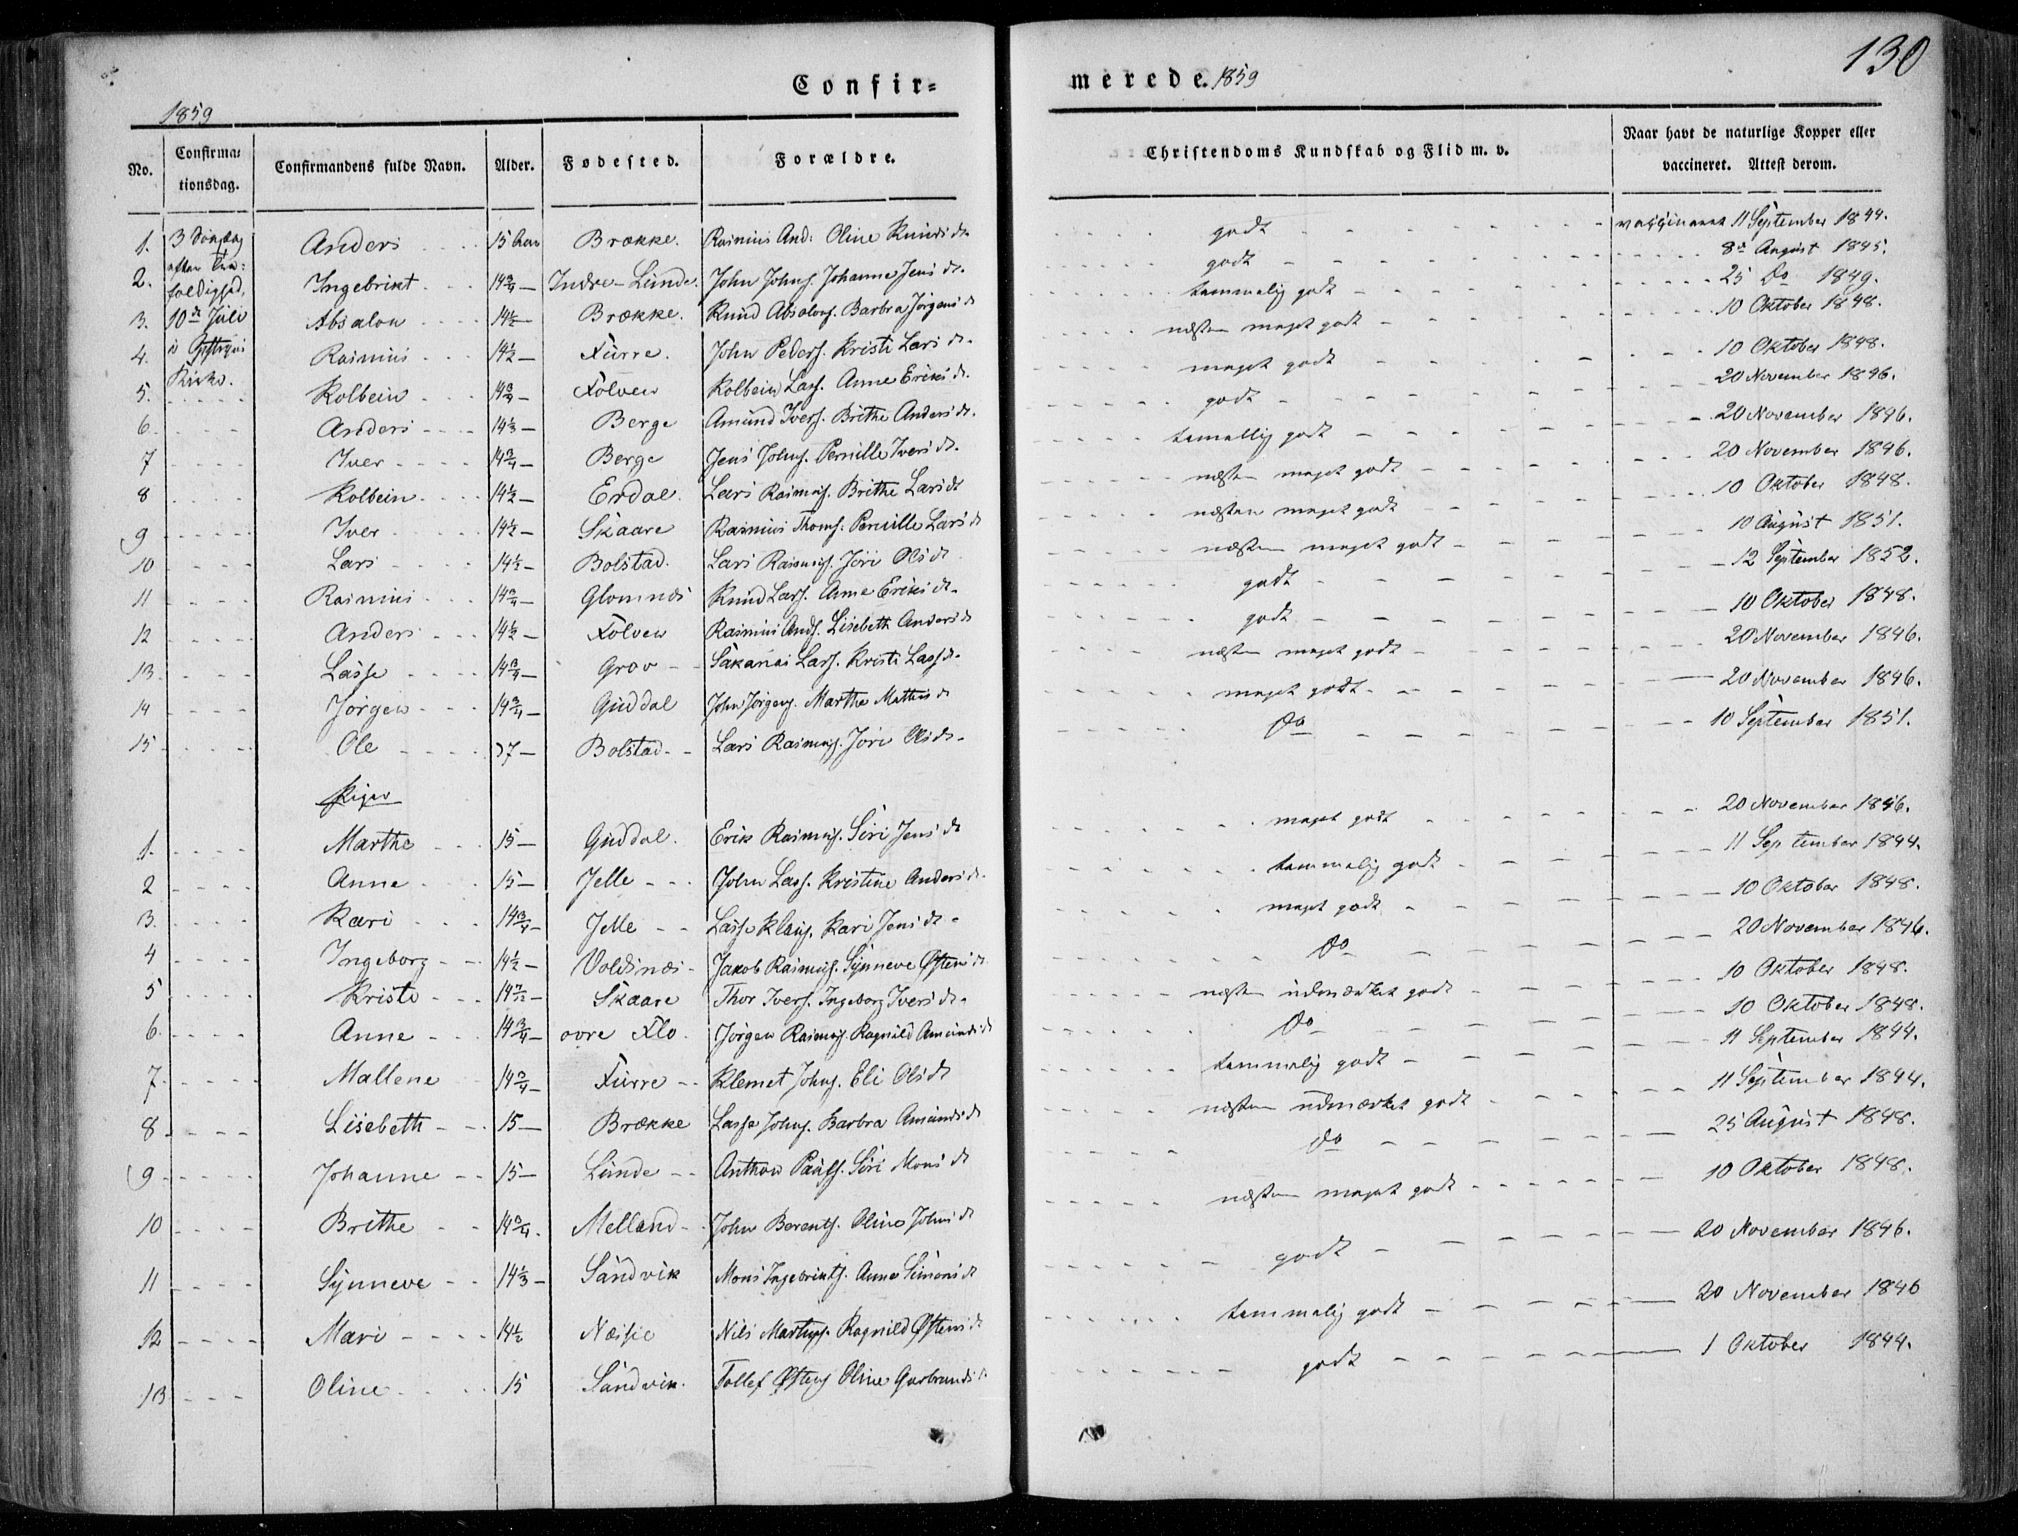 130
Confir= merede. 1859
1859
No. Confirmationsdag. Confirmandens fulde Navn. Alder. Fødested. Forældre. Christendoms Kundskab og Flid m. v. Naar havt de naturlige Kopper eller vaccineret. Attest derom.
3 Søndag
efter Tre=
foldighed,
10de Juli
i
Kirke.
1. Anders 15 Aar Brække. Rasmus And: Oline Knuds dt. godt vaccineret 11 September 1844.
2. Ingebrikt 14 3/4 Indre-Lunde. John Johns. Johanne Jens dt. godt 8de August 1845.
3. Absalon 14 1/2 Brække. Knud Absalons. Barbra Jørgens dt temmelig godt 25 Do 1849.
4. Rasmus 14 1/2 Furre. John Peders. Kristi Lars dt. næsten meget godt 10 Oktober 1848.
5. Kolbein 14 3/4 Folven Kolbein Lass. Anne Eriks dt. meget godt 10 Oktober 1848.
6. Anders 14 1/3 Berge Amund Ivers. Brithe Anders dt. godt 20 November 1846.
7 Iver 14 3/4 Berge Jens Johns. Pernille Ivers dt. temellig godt 20 November 1846.
8 Kolbein 14 1/2 Erdal. Lars Rasmus. Brithe Lars dt næsten meget godt 20 November 1846.
9 Iver 14 1/2 Skaare Rasmus Thoms. Pernille Lars dt næsten meget godt 10 Oktober 1848.
10 Lars 14 1/2 Bolstad. Lars Rasmus. Jøri Ols dt næsten meget godt 10 August 1851.
11 Rasmus 14 3/4 Glomnes Knud Lars. Anne Eriks dt. godt 12 September 1852.
12 Anders 14 1/2 Folven Rasmus Ands. Lisebeth Anders dt godt 10 Oktober 1848.
13. Lasse 14 3/4 Grov Sakarias Lars. Kristi Lass dt. næsten meget godt 20 November 1846.
14 Jørgen 14 3/4 Guddal John Jørgens. Marthe Mathis dt meget godt 20 November 1846.
15 Ole 37 Bolstad Lars Rasmus. Jøri Ols dt. Do 10 September 1851.
Piger
1. Marthe 15 Guddal. Erik Rasmus. Siri Jens dt meget godt 20 November 1846.
2 Anne 15 Jelle John Lass. Kristine Anders dt. temmelig godt 11 September 1844.
3. Kari 14 3/4 Jelle Lasse Klaus. Kari Jens dt. meget godt 10 Oktober 1848.
4 Ingeborg 14 1/2 Voldsnes Jakob Rasmus. Synneve Østens dt. Do 20 November 1846.
5 Kristi 14 7/12 Skaare Thor Ivers. Ingeborg Ivers dt. næsten udmærket godt 10 Oktober 1848.
6. Anne 14 3/4 øvre Flo. Jørgen Rasmus. Ragnild Amunds dt Do 10 Oktober 1848.
7. Mallene 14 3/4 Furre Klemet Johns. Eli Ols dt temmelig godt 11 September 1844.
8 Lisebeth 15 Brække Lasse Johns. Barbra Amunds dt næsten udmærket godt 11 September 1844.
9 Johanne 15 Lunde Anthon Pauls. Siri Mons dt Do 25 August 1848.
10 Brithe 14 3/4 Melland John Berents. Oline Johns dt næsten meget godt 10 Oktober 1848.
11 Synneve 14 1/3 Sandvik Mons Ingebrikts. Anne Simons dt godt 20 November 1846.
12 Mari 14 1/2 Nils Ragnild Østens dt temmelig godt 20 November 1846
13 Oline 15 Sandvik. Tollef Østens Oline Garbrands dt godt 1 Oktober 1844.